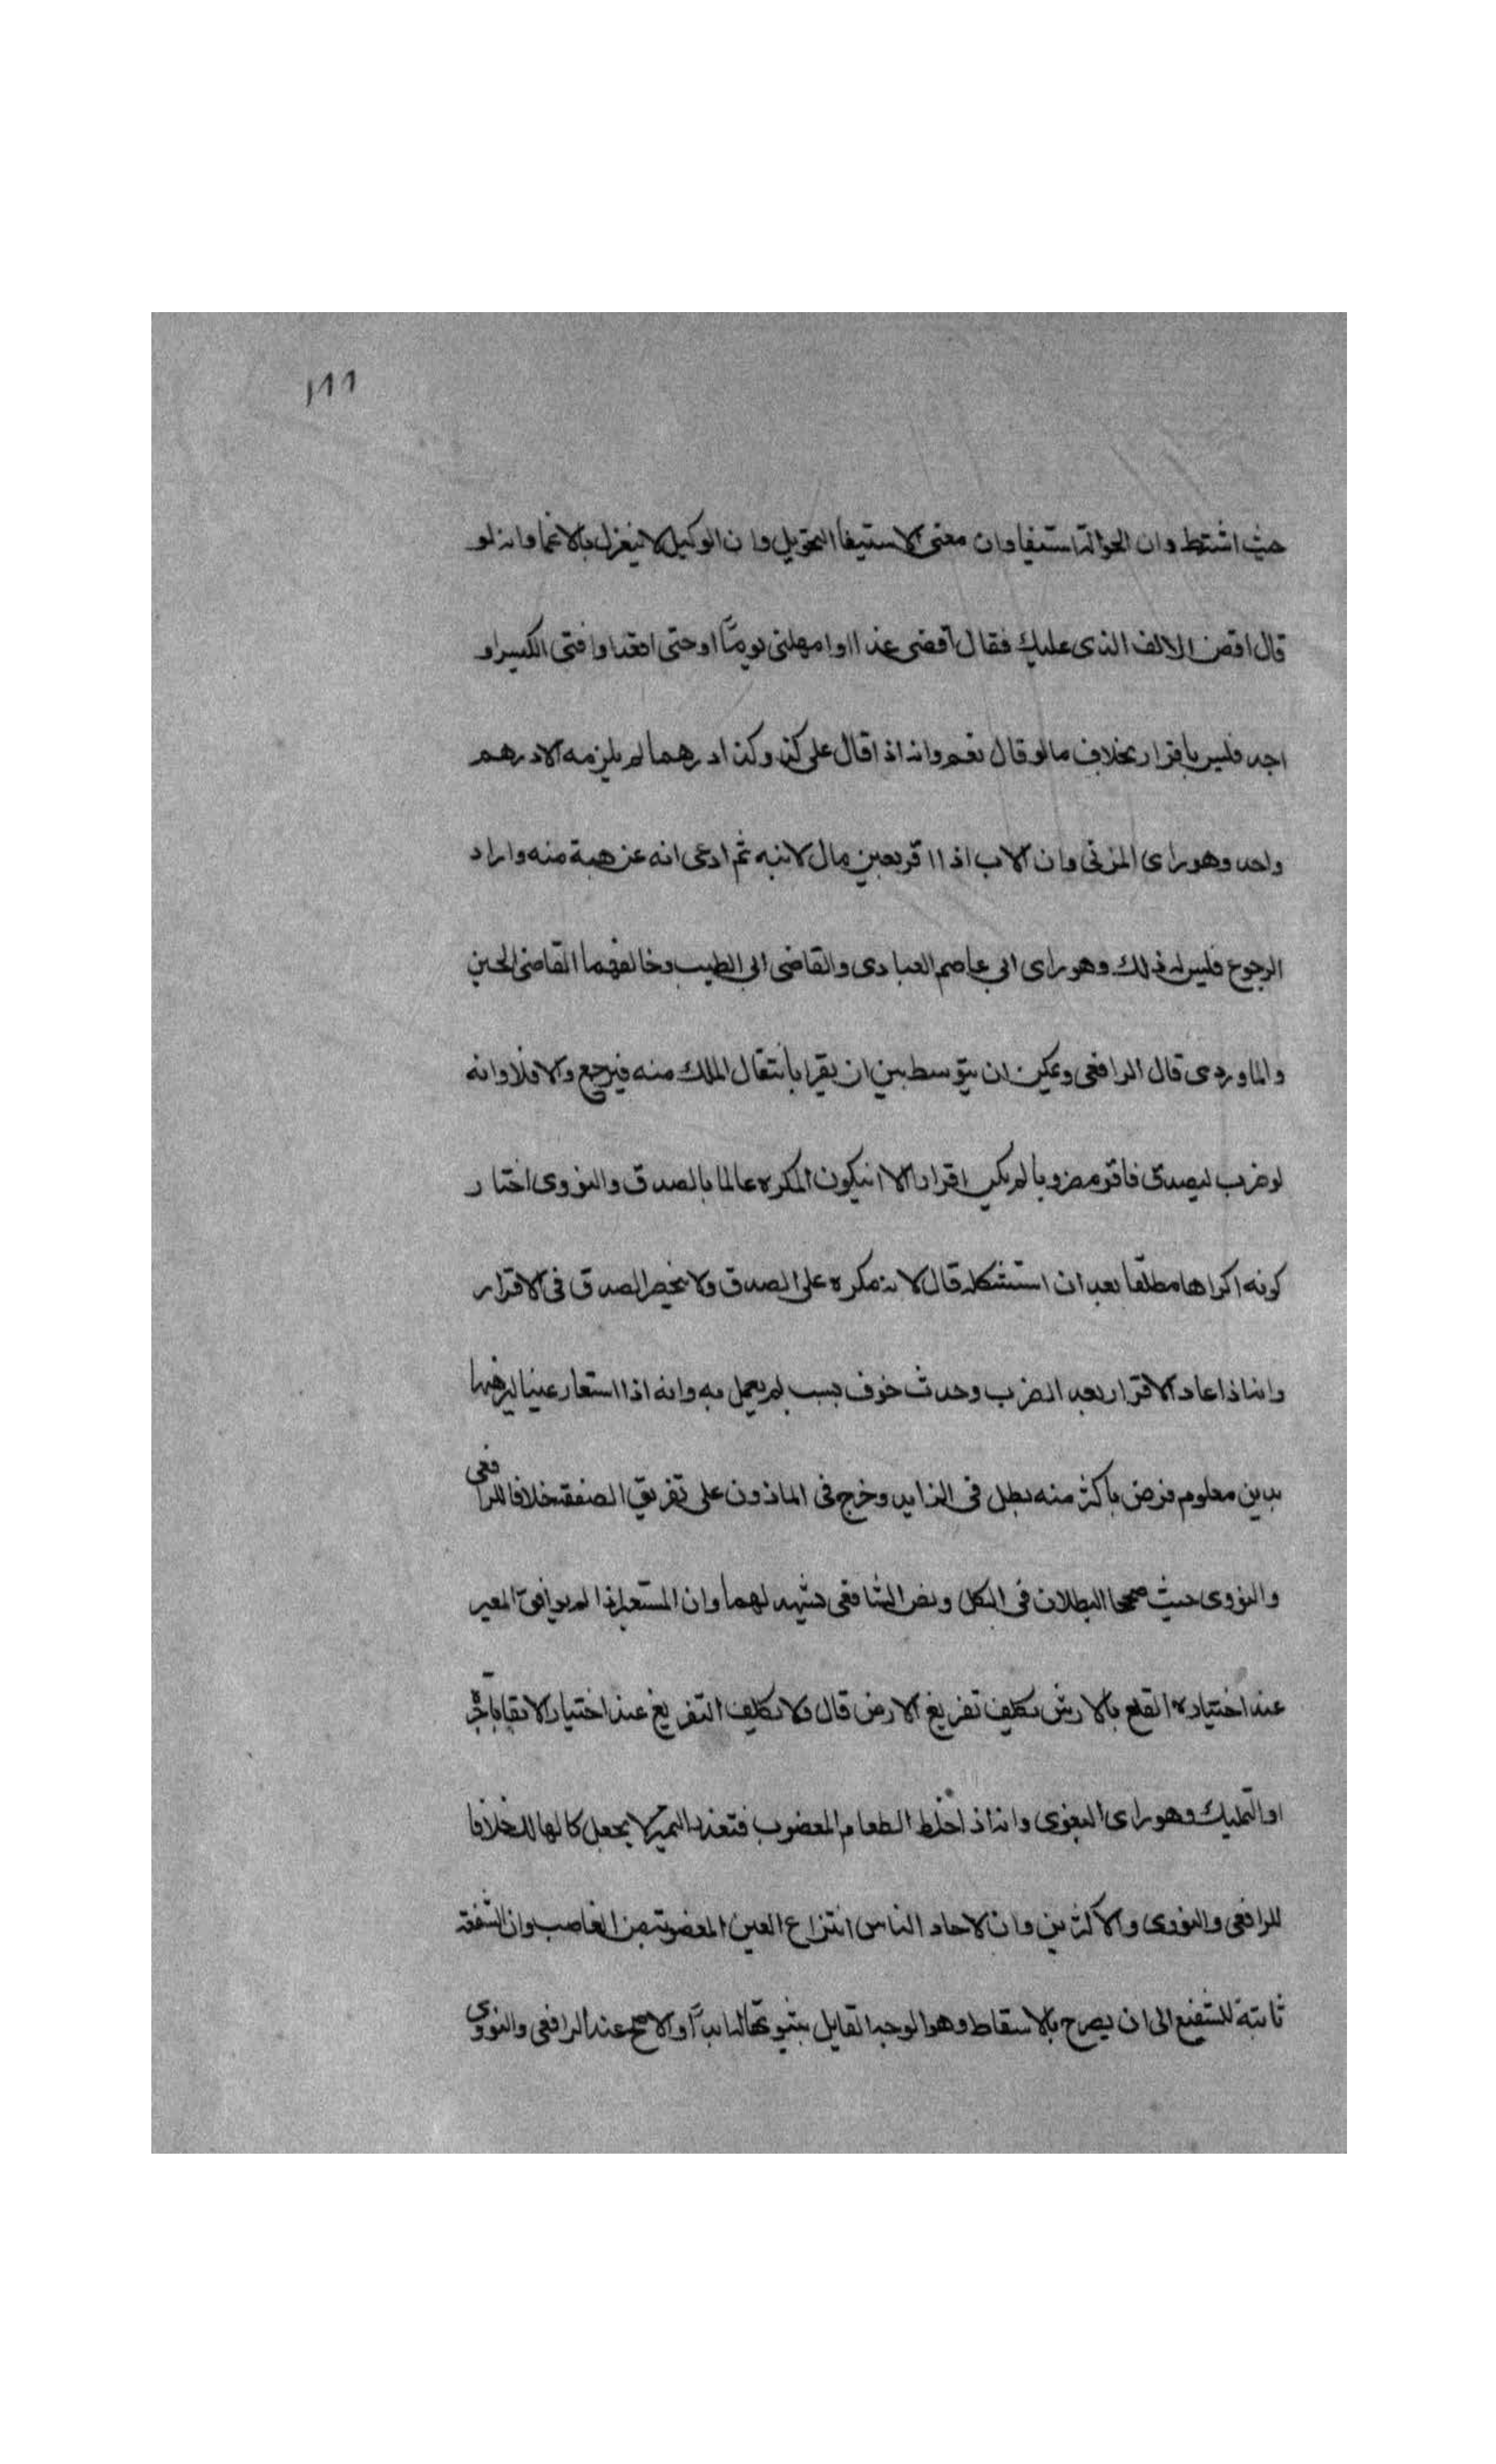 ١٩٩
حيث اشترط وان الحوالة استيفا وان معنى الاستيفا التحويل وان الوكيل لا ينعزل بالاغما وانه لو
قال اقض الالف الذى عليك فقال اقضى غدا او امهلنى يوما او حتى اقعد او افتح الكيس او
اجد فليس باقرار بخلاف ما لو قال نعم وانه اذا قال على كذا وكذا درهما لم يلزمه الا درهم
واحد وهو راى المزنى وان الاب اذا اقر بعين مال لابنه ثم ادعى انه عن هبة منه واراد
الرجوع فليس له ذلك وهو راى ابى عاصم العبادى والقاضى ابى الطيب وخالفهما القاضى الحسين
والماوردى قال الرافعى ويمكن ان يتوسط بين ان يقرا بانتقال الملك منه فيرجع والا فلا وانه
لو ضرب ليصدق فاقر مضروبا لم يكن اقرارا الا ان يكون المكره عالما بالصدق والنووى اختار
كونه اكراها مطلقا بعد ان استشكله قال لانه مكره على الصدق ولا ينحصر الصدق فى الاقرار
وانه اذا عاد الاقرار بعد الضرب وحدث خوف بسبب لم يعمل به وانه اذا استعار عينا ليرهنها
بدين معلوم فرهن باكثر منه بطل فى الزايد وخرج فى الماذون على تفريق الصفقة خلافا للرافعى
والنووى حيث صححا البطلان فى الكل ونص الشافعى يشهد لهما وان المستعير اذا لم يوافق المعير
عند اختياره القلع بالارش يكلف تفريغ الارض قال ولا يكلف التفريغ عند اختيار الابقا باجرة
او التمليك وهو راى البغوى وانه اذا خلط الطعام المغصوب فتعذر التميز لا يجعل كالهالك خلافا
للرافعى والنووى والاكثرين وان لاحاد الناس انتزاع العين المغصوبة من الغاصب وان الشفعة
ثابتة للشفيع الى ان يصرح بالاسقاط وهو الوجه القايل بثبوتها ابدا والاصح عند الرافعى والنووى